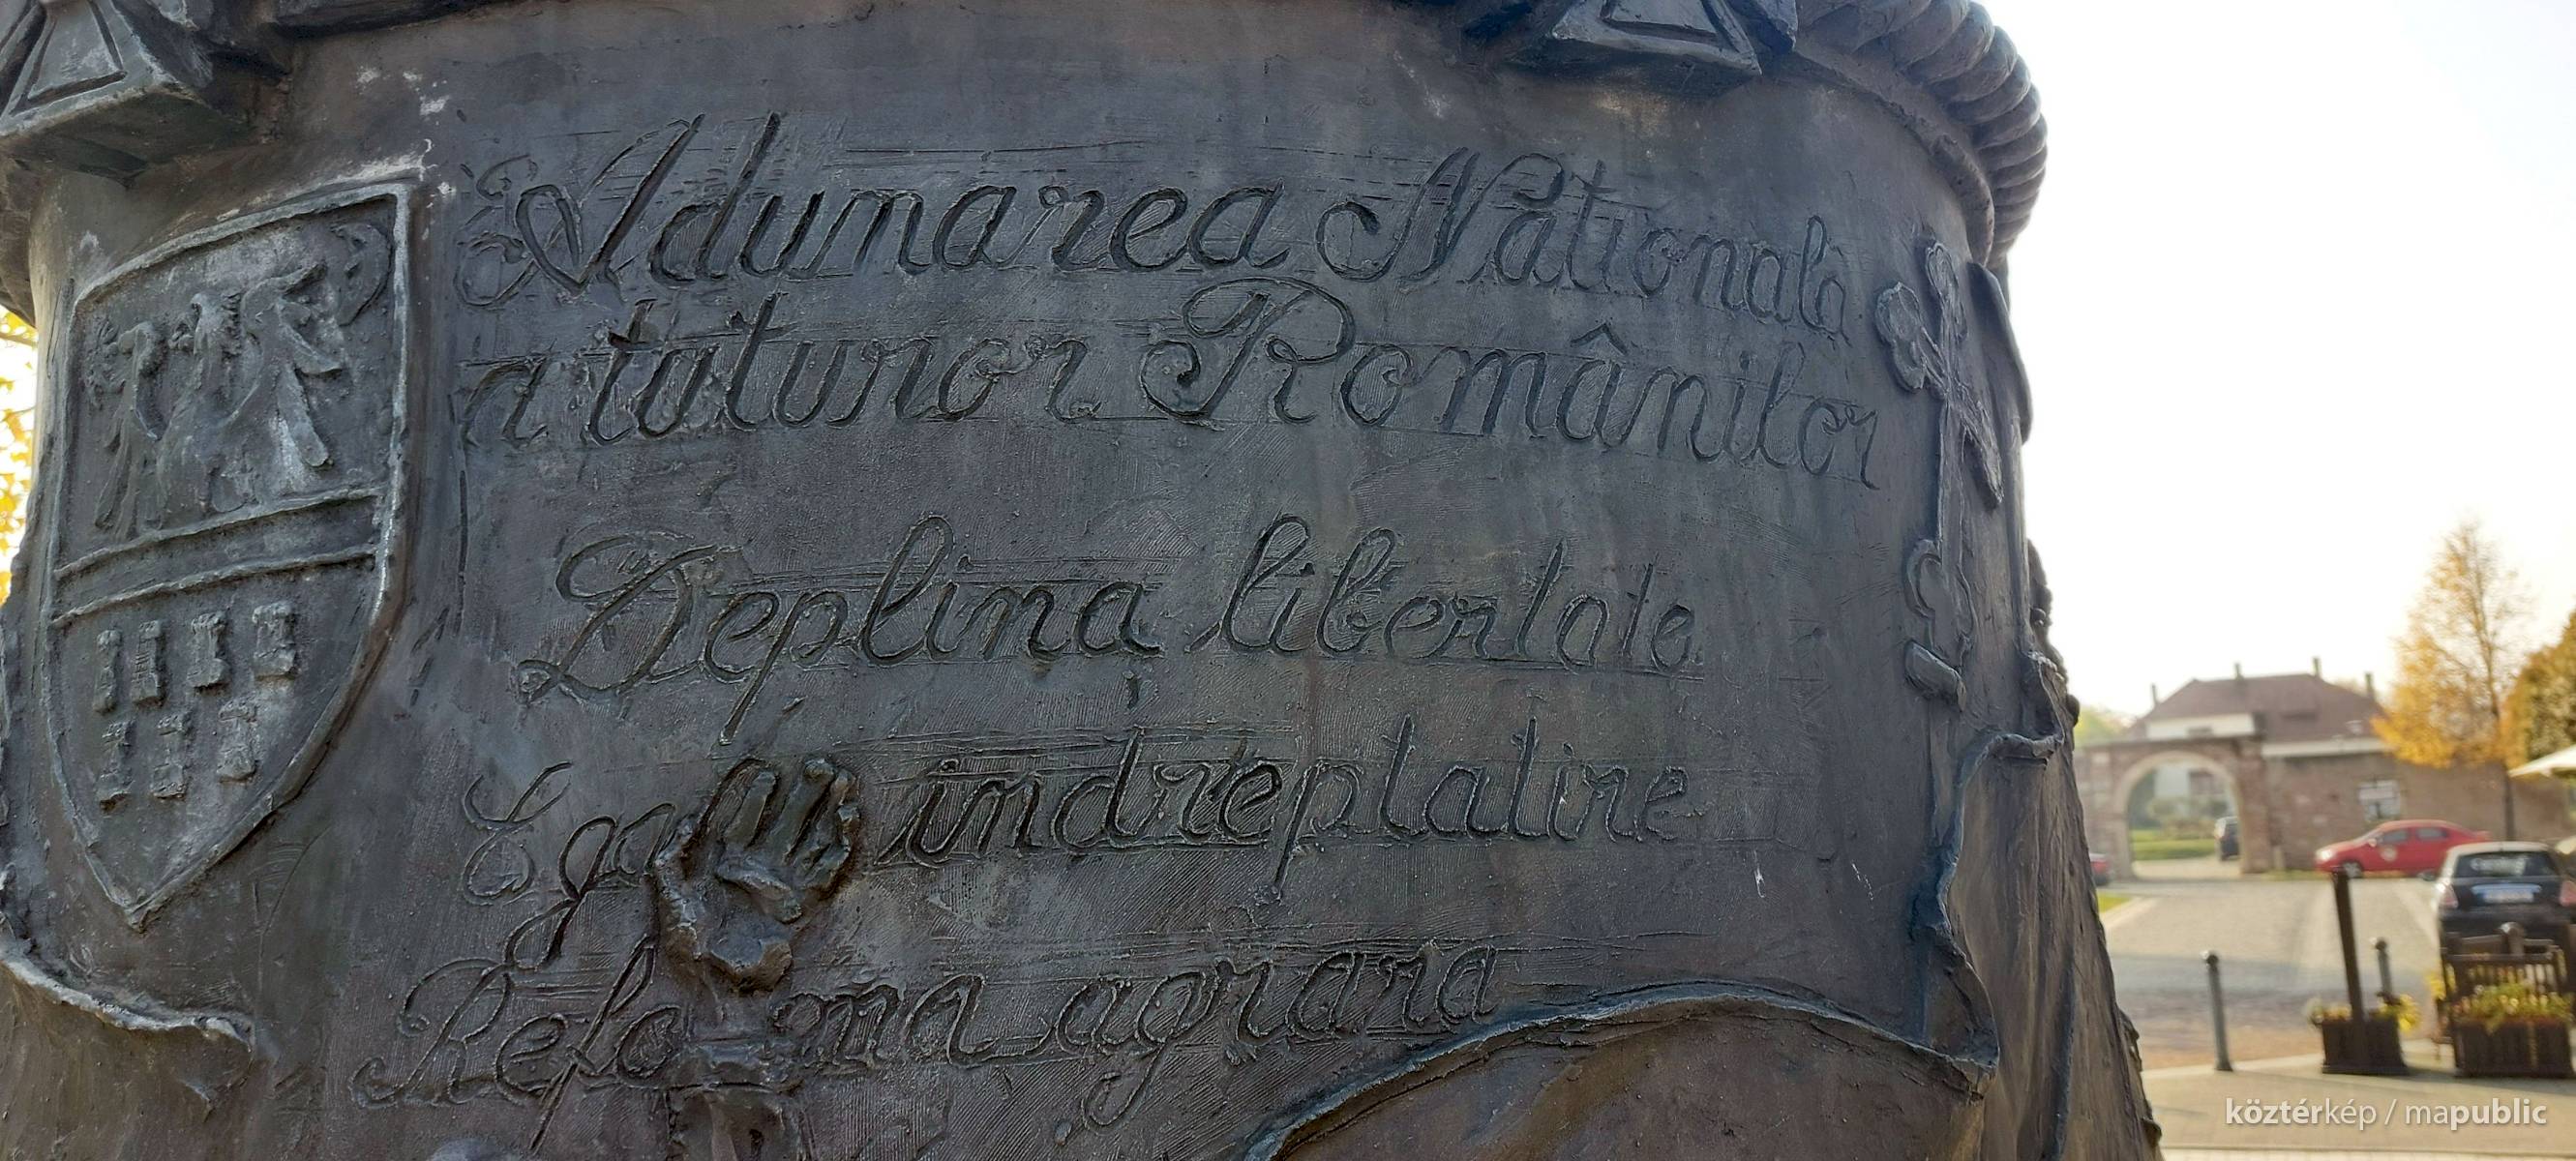 Adunarea Nationala
a tuturor Românilor
Deplina libertate
Ega indreptatire
Reforma agrara
köztérkép / mapublic